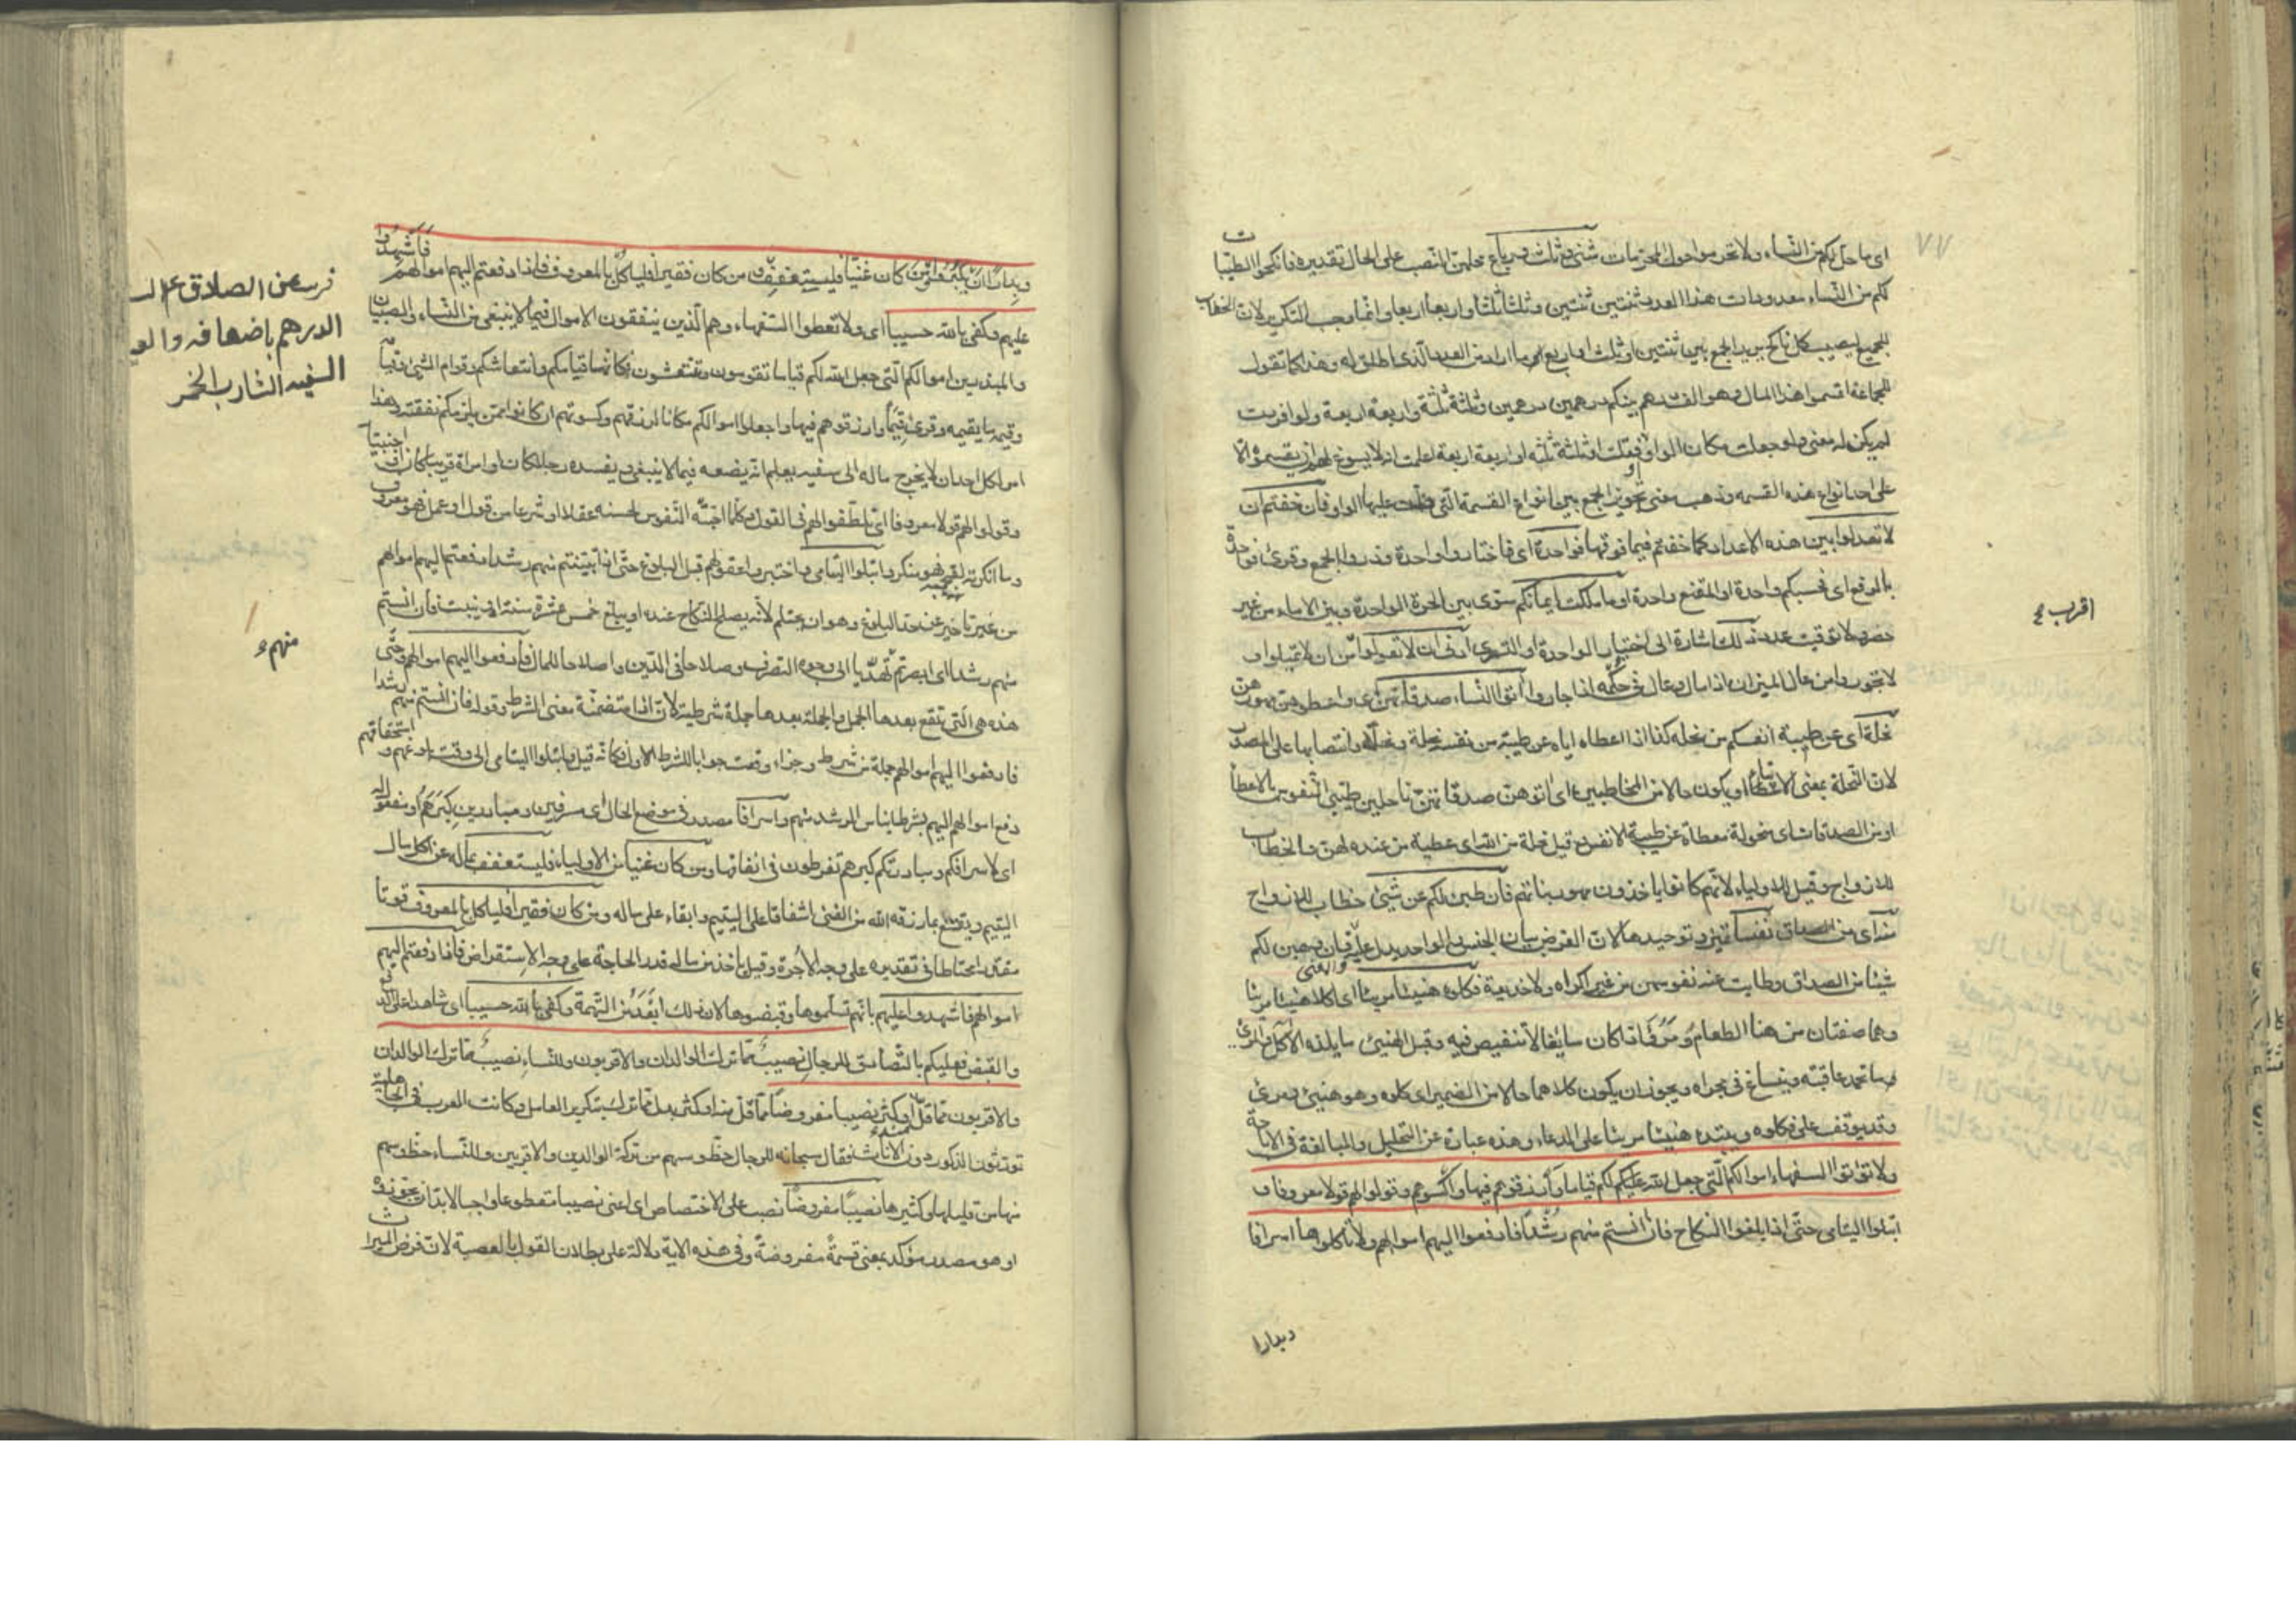 ٧٧
اى ما حل لكم من النساء ولا تحوموا حول المحرمات مثنى وثلث ورباع محلهن النصب على الحال تقديره فانكحوا الطيبات
لكم من النساء معدودات هذا العدد ثنتين ثنتين وثلثا ثلثا واربعا اربعا وانما وجب التكرير لان الخطاب
للجميع ليصيب كل ناكح يريد الجمع بين ثنتين او ثلث او اربع ما اراد من العدد الذى اطلق له وهذا كما تقول
للجماعة اقسموا هذا المال وهو الف درهم بينكم درهمين درهمين وثلثة ثلثة واربعة اربعة ولو افردت
لم يكن له معنى ولو جعلت مكان الواو او فقلت او ثلثة ثلثه او اربعة اربعة اعلمت انه لا يسوغ لهم ان يقسموا الا
على احد انواع هذه القسمه وذهب معنى تجويز الجمع بين انواع القسمة التى دلت عليها الواو فان خفتم ان
لا تعدلوا بين هذه الاعداد كما خفتم فيما فوقها فواحدة اى فاختاروا واحدة وذروا الجمع وقرئ فواحدة
بالرفع اى فحسبكم واحدة او المقنع واحدة او ما ملكت ايمانكم سوى بين الحرة الواحدة وبين الاماء من غير
حصر ولا توقيت عدد ذلك اشارة الى اختيار الواحدة او التسرى ادنى ان لا تعولوا اقرب من ان لا تميلوا او
لا تجوروا من عال الميزان اذا مال وعال فى حكمه اذا جار وآتوا النساء صدقاتهن اى واعطوهن مهورهن
نحلة اى عن طيبة انفسكم من نحله كذا اذا اعطاه اياه عن طيبة من نفسه نحلة ونحلا وانتصابها على المصدر
لان النحلة بمعنى الايتاء او يكون حالا من المخاطبين اى آتوهن صدقاتهن ناحلين طيبى النفوس بالاعطاء
او من الصدقات اى منحولة معطاة عن طيبة الانفس وقيل نحلة من الله اى عطية من عنده لهن والخطاب
للازواج وقيل للاولياء لانهم كانوا ياخذون مهور بناتهم فان طبن لكم عن شئ خطاب للازواج
منه اى من الصداق نفسا تميز وتوحيدها لان الغرض بيان الجنس والواحد يدل عليه والمعنى فان وهبن لكم
شيئا من الصداق وطابت عنه نفوسهن من غير اكراه ولا خديعة فكلوه هنيئا مريئا اى اكلا هنيئا مريئا
وهما صفتان من هنأ الطعام ومرئ اذا كان سايغا لا تنغيص فيه وقيل الهنئ ما يلذه الآكل والمرئ
ما تحمد عاقبته وينساغ فى مجراه ويجوز ان يكون كلاهما حالا من الضمير اى كلوه وهو هنئ ومرئ
وقد يوقف على فكلوه ويبتدء هنيئا مريئا على الدعاء وهذه عبارة عن التحليل والمبالغة فى الاباحة
ولا تؤتوا السفهاء اموالكم التى جعل الله عليكم لكم قياما وارزقوهم فيها واكسوهم وقولوا لهم قولا معروفا و
ابتلوا اليتامى حتى اذا بلغوا النكاح فان انستم منهم رشدا فادفعوا اليهم اموالهم ولا تاكلوها اسرافا
وبدارا
اقرب
وبدارا ان يكبروا ومن كان غنيا فليستعفف ومن كان فقيرا فلياكل بالمعروف فاذا دفعتم اليهم اموالهم فاشهدوا
عليهم وكفى بالله حسيبا اى ولا تعطوا السفهاء وهم الذين ينفقون الاموال فيما لا ينبغى من النساء والصبيان
والمبذرين اموالكم التى جعل الله لكم قياما تقومون وتنتعشون فكانها قيامكم وانتعاشكم وقوام الشئ وقيامه
وقيمه ما يقيمه وقرئ قيما وارزقوهم فيها واجعلوا اموالكم مكانا لرزقهم وكسوتهم ان كانوا ممن يلزمكم نفقته وهذا
امر لكل احد ان لا يخرج ماله الى سفيه يعلم انه يضعه فيما لا ينبغى ويفسده رجلا كان او امراة قريبا كان او اجنبيا
وقولوا لهم قولا معروفا اى تلطفوا لهم فى القول وكلما احبته النفوس لحسنه عقلا او شرعا من قول او عمل فهو معروف
وما انكرته لقبحه فهو منكر وابتلوا اليتامى واختبروا عقولهم قبل البلوغ حتى اذا تبينتم منهم رشدا دفعتم اليهم اموالهم
من غير تاخير عن حد البلوغ وهو ان يحتلم لانه يصلح للنكاح عنده او يبلغ خمس عشرة سنة او ينبت فان انستم
منهم رشدا اى ابصرتم تهديا الى وجوه التصرف وصلاحا فى الدين واصلاحا للمال فادفعوا اليهم اموالهم وحتى
هذه هى التى تقع بعدها الجمل والجملة بعدها جملة شرطية لان اذا متضمنة معنى الشرط وقوله فان انستم منهم رشدا
فادفعوا اليهم اموالهم جملة من شرط وجزاء وقعت جوابا للشرط الاول فكانه قيل وابتلوا اليتامى الى وقت بلوغهم واستحقاقهم
دفع اموالهم اليهم بشرط ايناس الرشد منهم واسرافا مصدر فى موضع الحال اى مسرفين ومبادرين كبرهم او مفعول له
اى لاسرافكم ومبادرتكم كبرهم تفرطون فى انفاقها ومن كان غنيا من الاولياء فليستعفف بماله عن اكل مال
اليتيم ويقنع بما رزقه الله من الغنى اشفاقا على اليتيم وابقاء على ماله ومن كان فقيرا فلياكل بالمعروف قوتا
مقدرا محتاطا فى تقديره على وجه الاجرة وقيل ياخذ من ماله قدر الحاجة على وجه الاستقراض فاذا دفعتم اليهم
اموالهم فاشهدوا عليهم بانهم تسلموها وقبضوها لان ذلك ابعد من التهمة وكفى بالله حسيبا اى شاهدا على الدفع
والقبض فعليكم بالتصادق للرجال نصيب مما ترك الوالدان والاقربون وللنساء نصيب مما ترك الوالدان
والاقربون مما قل منه او كثر نصيبا مفروضا مما قل منه او كثر بدل مما ترك بتكرير العامل وكانت العرب فى الجاهلية
تورثون الذكور دون الاناث فقال سبحانه للرجال حظ وسهم من تركة الوالدين والاقربين وللنساء حظ وسهم
منها من قليلها وكثيرها نصيبا مفروضا نصب على الاختصاص اى اعنى نصيبا مقطوعا واجبا لابد ان يحوزوه
او هو مصدر مؤكد بمعنى قسمة مفروضة وفى هذه الاية دلالة على بطلان القول بالعصبة لان فرض الميراث
عن الصادق
الدرهم باضعافه
السفيه الشارب الخمر
منهم